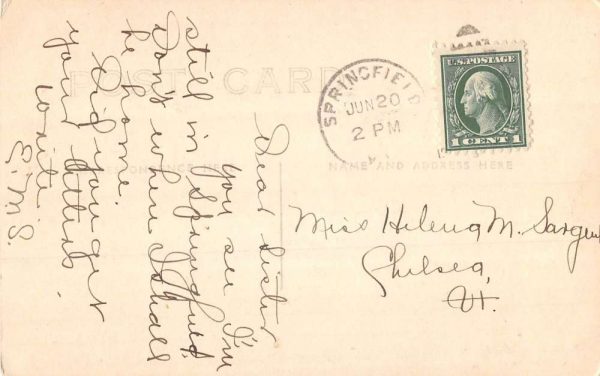 POST CARD
SPRINGFIELD
JUN 20
2 PM
U.S. POSTAGE
1 CENT 1
CORRESPONDENCE HERE
NAME AND ADDRESS HERE
Dear Sister
You see I'm
still in Springfield.
Don't when I shall
be home.
Did you get
your
write.
E.M.S.
Miss Helena M. Sargent
Chelsea,
Vt.